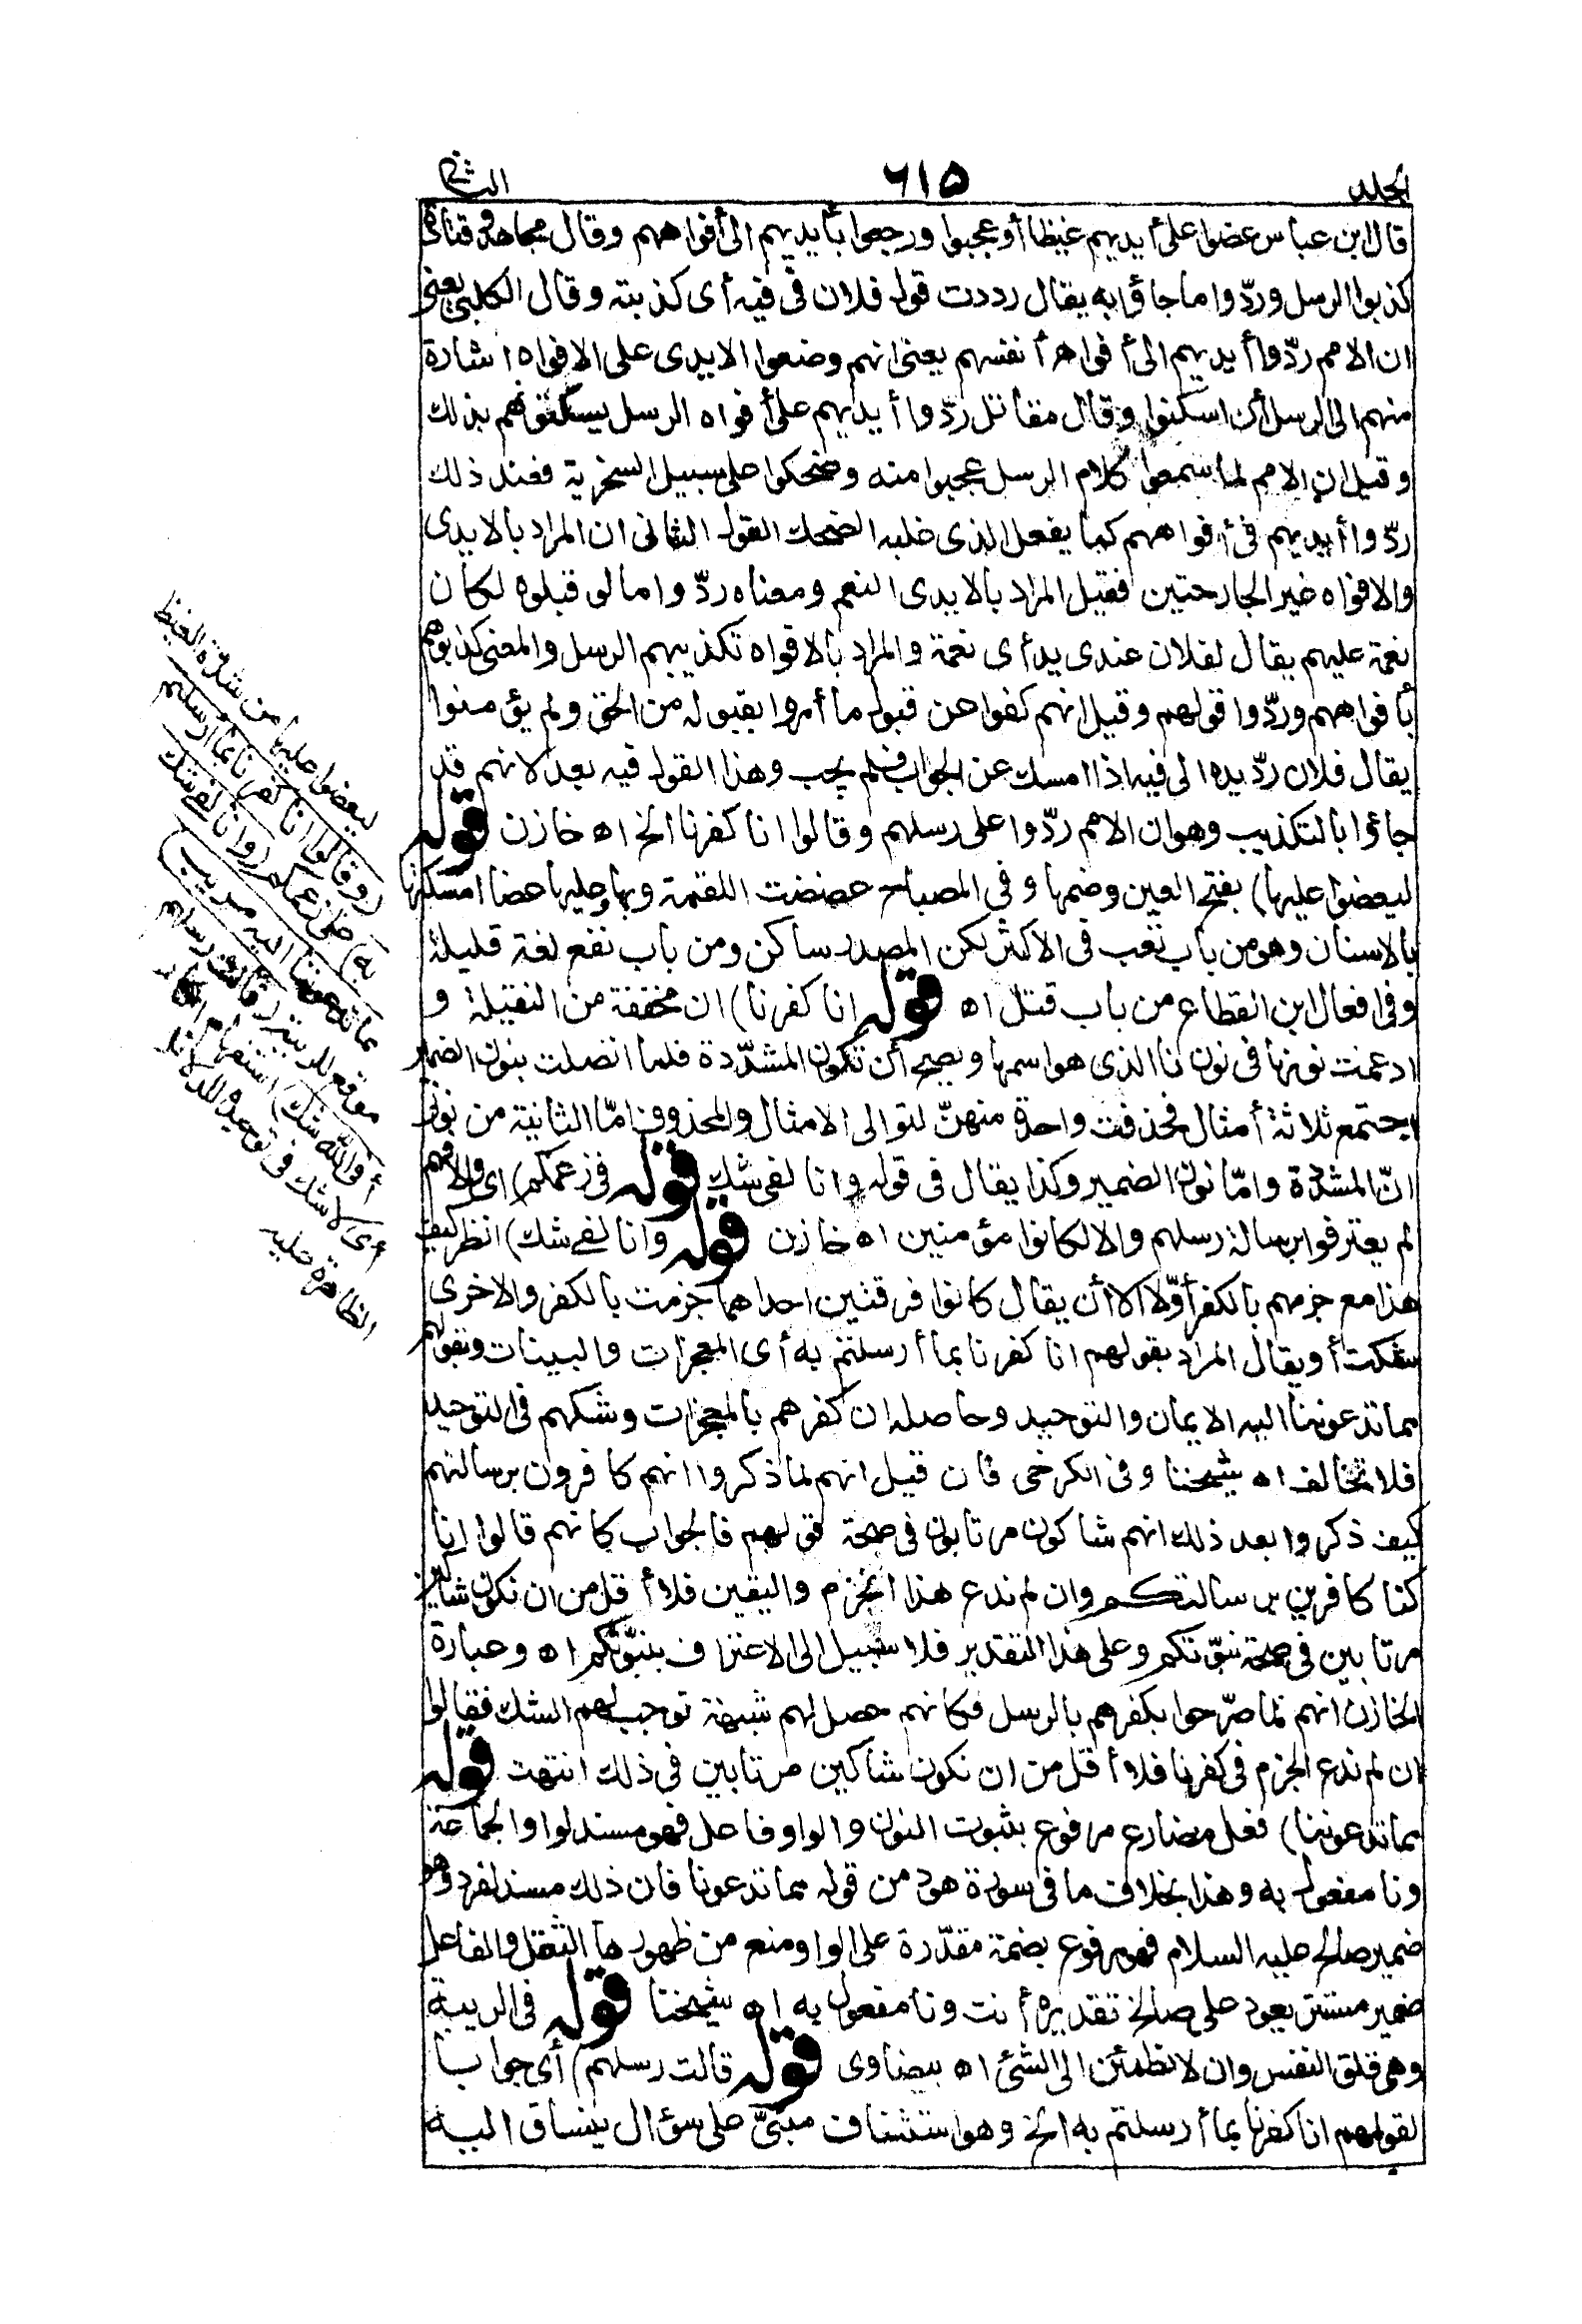 الجلد ٦١٥ الثانى
قال ابن عباس عضوا على أيديهم غيظا أو عجبوا ورجعوا بأيديهم الى أفواههم وقال مجاهد وقتادة
كذبوا الرسل وردّوا ما جاؤا به يقال رددت قول فلان فى فيه أى كذبته وقال الكلبى يعنى
ان الامم ردّوا أيديهم الى أفواه أنفسهم يعنى انهم وضعوا الايدى على الافواه اشارة
منهم الى الرسل أن اسكتوا وقال مقاتل ردّوا أيديهم على أفواه الرسل يسكتونهم بذلك
وقيل ان الامم لما سمعوا كلام الرسل عجبوا منه وضحكوا على سبيل السخرية فعند ذلك
ردّوا أيديهم فى أفواههم كما يفعل الذى غلبه الضحك القول الثانى ان المراد بالايدى
والافواه غير الجارحتين فقيل المراد بالايدى النعم ومعناه ردّوا ما لو قبلوه لكان
نعمة عليهم يقال لفلان عندى يد أى نعمة والمراد بالافواه تكذيبهم الرسل والمعنى كذبوهم
بأفواههم وردّوا قولهم وقيل انهم كفوا عن قبول ما أمروا بقبوله من الحق ولم يؤمنوا
يقال فلان ردّ يده الى فيه اذا امسك عن الجواب فلم يجب وهذا القول فيه بعد لانهم قد
جاؤا بالتكذيب وهو ان الامم ردّوا على رسلهم وقالوا انا كفرنا الخ اه خازن قوله
ليعضوا عليها) بفتح العين وضمها وفى المصباح عضضت اللقمة وبها وعليها عضا امسكتها
بالاسنان وهو من باب تعب فى الاكثر لكن المصدر ساكن ومن باب نفع لغة قليلة
وفى افعال ابن القطاع من باب قتل اه قوله انا كفرنا) ان مخففة من الثقيلة و
ادغمت نونها فى نون نا الذى هو اسمها ويصح أن تكون المشدّدة فلما اتصلت بنون الضمير
اجتمع ثلاثة أمثال فحذفت واحدة منهنّ لتوالى الامثال والمحذوف امّا الثانية من نونى
انّ المشدّدة وامّا نون الضمير وكذا يقال فى قوله وانا لفى شك قوله فى زعمكم) اى والا فهم
لم يعترفوا برسالة رسلهم والا لكانوا مؤمنين اه خازن قوله وانا لفى شك) انظر كيف
هذا مع جزمهم بالكفر أوّلا الا أن يقال كانوا فرقتين احداهما جزمت بالكفر والاخرى
شكت أو يقال المراد بقولهم انا كفرنا بما أرسلتم به أى المعجزات والبينات وبقولهم
مما تدعوننا اليه الايمان والتوحيد وحاصله ان كفرهم بالمعجزات وشكهم فى التوحيد
فلا تخالف اه شيخنا وفى الكرخى فان قيل انهم لما ذكروا انهم كافرون برسالتهم
كيف ذكروا بعد ذلك انهم شاكون مرتابون فى صحة قولهم فالجواب كانهم قالوا انا
كنا كافرين برسالتكم وان لم ندع هذا الجزم واليقين فلا أقل من ان نكون شاكين
مرتابين فى صحة نبوّتكم وعلى هذا التقدير فلا سبيل الى الاعتراف بنبوّتكم اه وعبارة
الخازن انهم لما صرّحوا بكفرهم بالرسل فكانهم حصل لهم شبهة توجب لهم الشك فقالوا
ان لم ندع الجزم فى كفرنا فلا أقل من ان نكون شاكين مرتابين فى ذلك انتهت قوله
مما تدعوننا) فعل مضارع مرفوع بثبوت النون والواو فاعل فهو مسند لواو الجماعة
ونا مفعول به وهذا بخلاف ما فى سورة هود من قوله مما تدعونا فان ذلك مسند لمفرد وهو
ضمير صالح عليه السلام فهو مرفوع بضمة مقدّرة على الواو منع من ظهورها الثقل والفاعل
ضمير مستتر يعود على صالح تقديره أنت ونا مفعول به اه شيخنا قوله فى الريبة
وهى قلق النفس وان لا تطمئن الى الشئ اه بيضاوى قوله قالت رسلهم) أى جوابا
لقولهم انا كفرنا بما أرسلتم به الخ وهو استئناف مبنىّ على سؤال ينساق اليه
ليعضوا عليها من شدّة الغيظ
(وقالوا انا كفرنا بما أرسلتم
به) على زعمكم (وانا لفى شك
مما تدعوننا اليه مريب)
موقع للريبة (قالت رسلهم
أفى الله شك) استفهام انكار
أى لا شك فى توحيده للدلائل
الظاهرة عليه